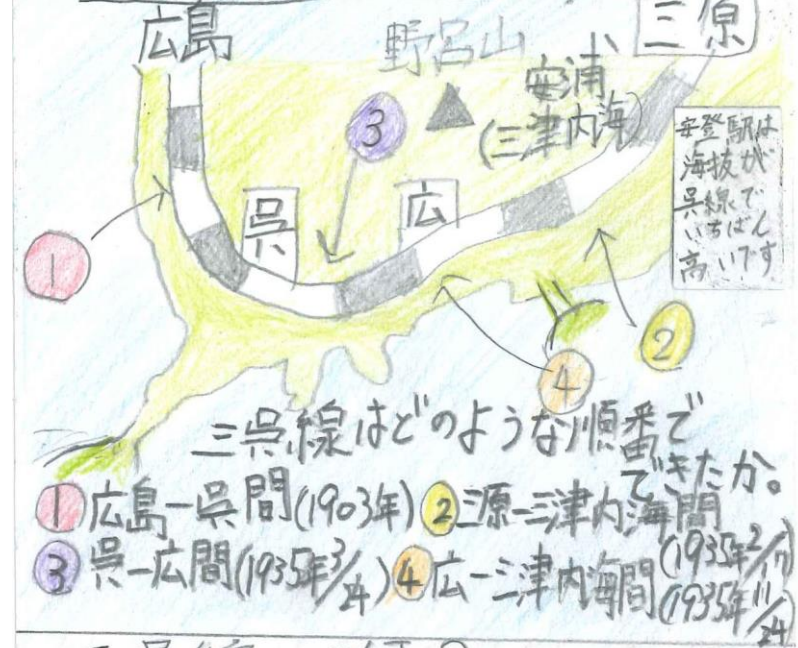 広島
野呂山
三原
安浦
(三津内海)
安登駅は
海抜が
呉線で
いちばん
高いです
③
呉
広
①
②
④
三呉線はどのような順番で
できたか。
①広島ー呉間(1903年)②三原ー三津内海間
(1935年2/17)
③呉ー広間(1935年3/24)④広ー三津内海間
(1935年11/24)